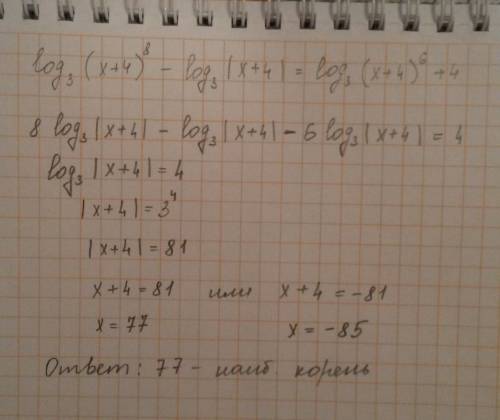 log₃(x+4)⁸ - log₃|x+4| = log₃(x+4)⁶ + 4
8 log₃|x+4| - log₃|x+4| - 6 log₃|x+4| = 4
log₃|x+4| = 4
|x+4| = 3⁴
|x+4| = 81
x+4 = 81 или x+4 = -81
x = 77 x = -85
Ответ: 77 - наиб. корень